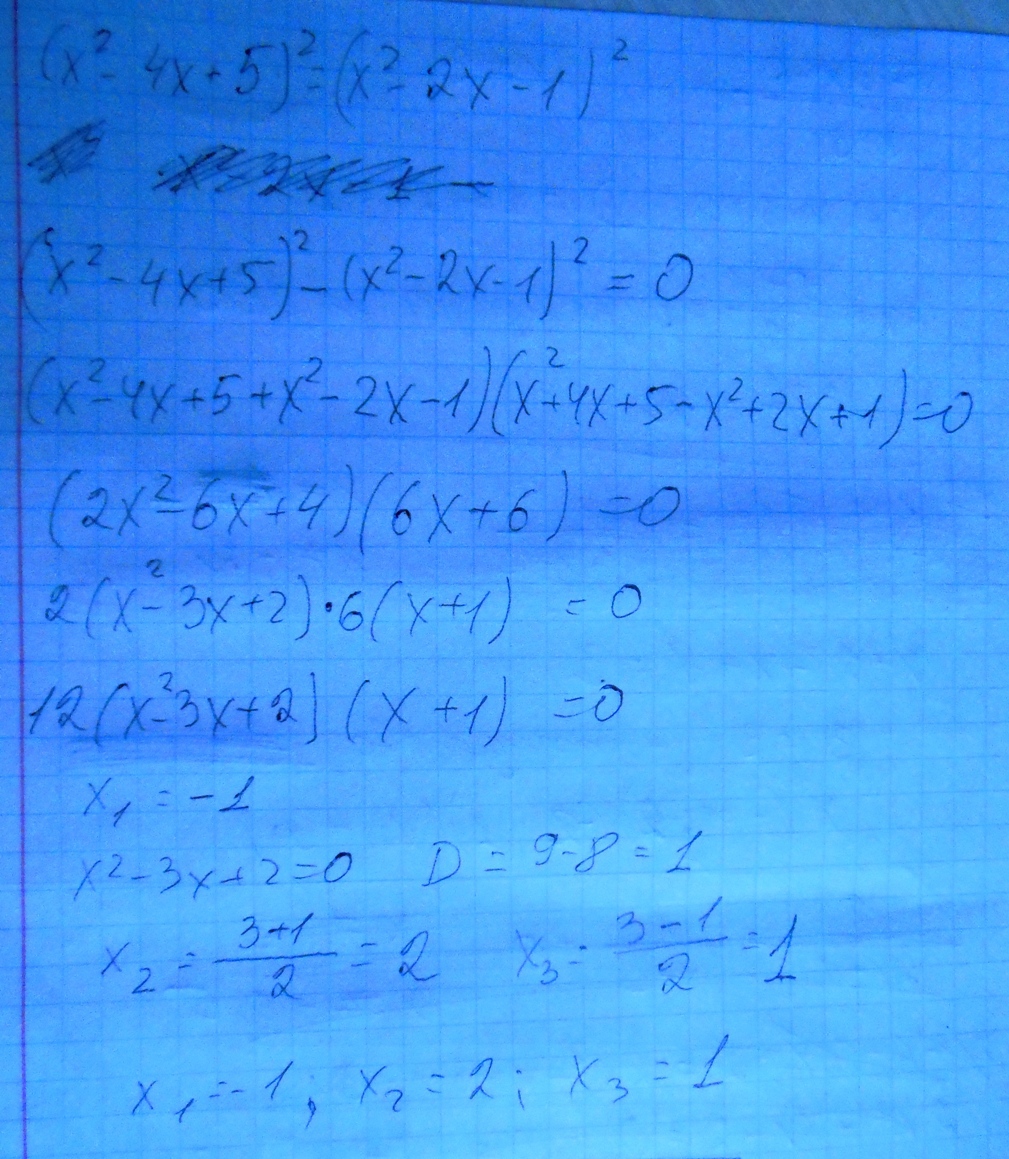 (x² - 4x + 5)² = (x² - 2x - 1)²
(x² - 4x + 5)² - (x² - 2x - 1)² = 0
(x² - 4x + 5 + x² - 2x - 1)(x² + 4x + 5 - x² + 2x + 1) = 0
(2x² - 6x + 4)(6x + 6) = 0
2(x² - 3x + 2) · 6(x + 1) = 0
12(x² - 3x + 2)(x + 1) = 0
x₁ = -1
x² - 3x + 2 = 0 D = 9 - 8 = 1
x₂ = (3+1)/2 = 2 x₃ = (3-1)/2 = 1
x₁ = -1; x₂ = 2; x₃ = 1